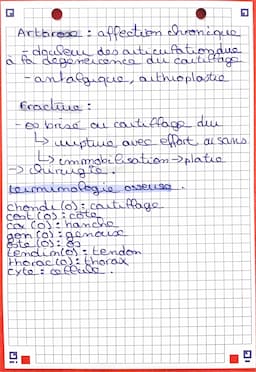 Arthrose : affection chronique
- douleur des articulation due
à la dégénérescence du cartillage
- antalgique, arthroplastie
Fracture :
- os brisé ou cartillage du
↳ rupture avec effort ou sans
↳ immobilisation → platre
→ chirurgie.
terminologie osseuse.
chondr(o) : cartillage
cost(o) : côte
cox(o) : hanche
gon(o) : genoux
oste(o) : os
tendin(o) : tendon
thorac(o) : thorax
cyte : cellule.